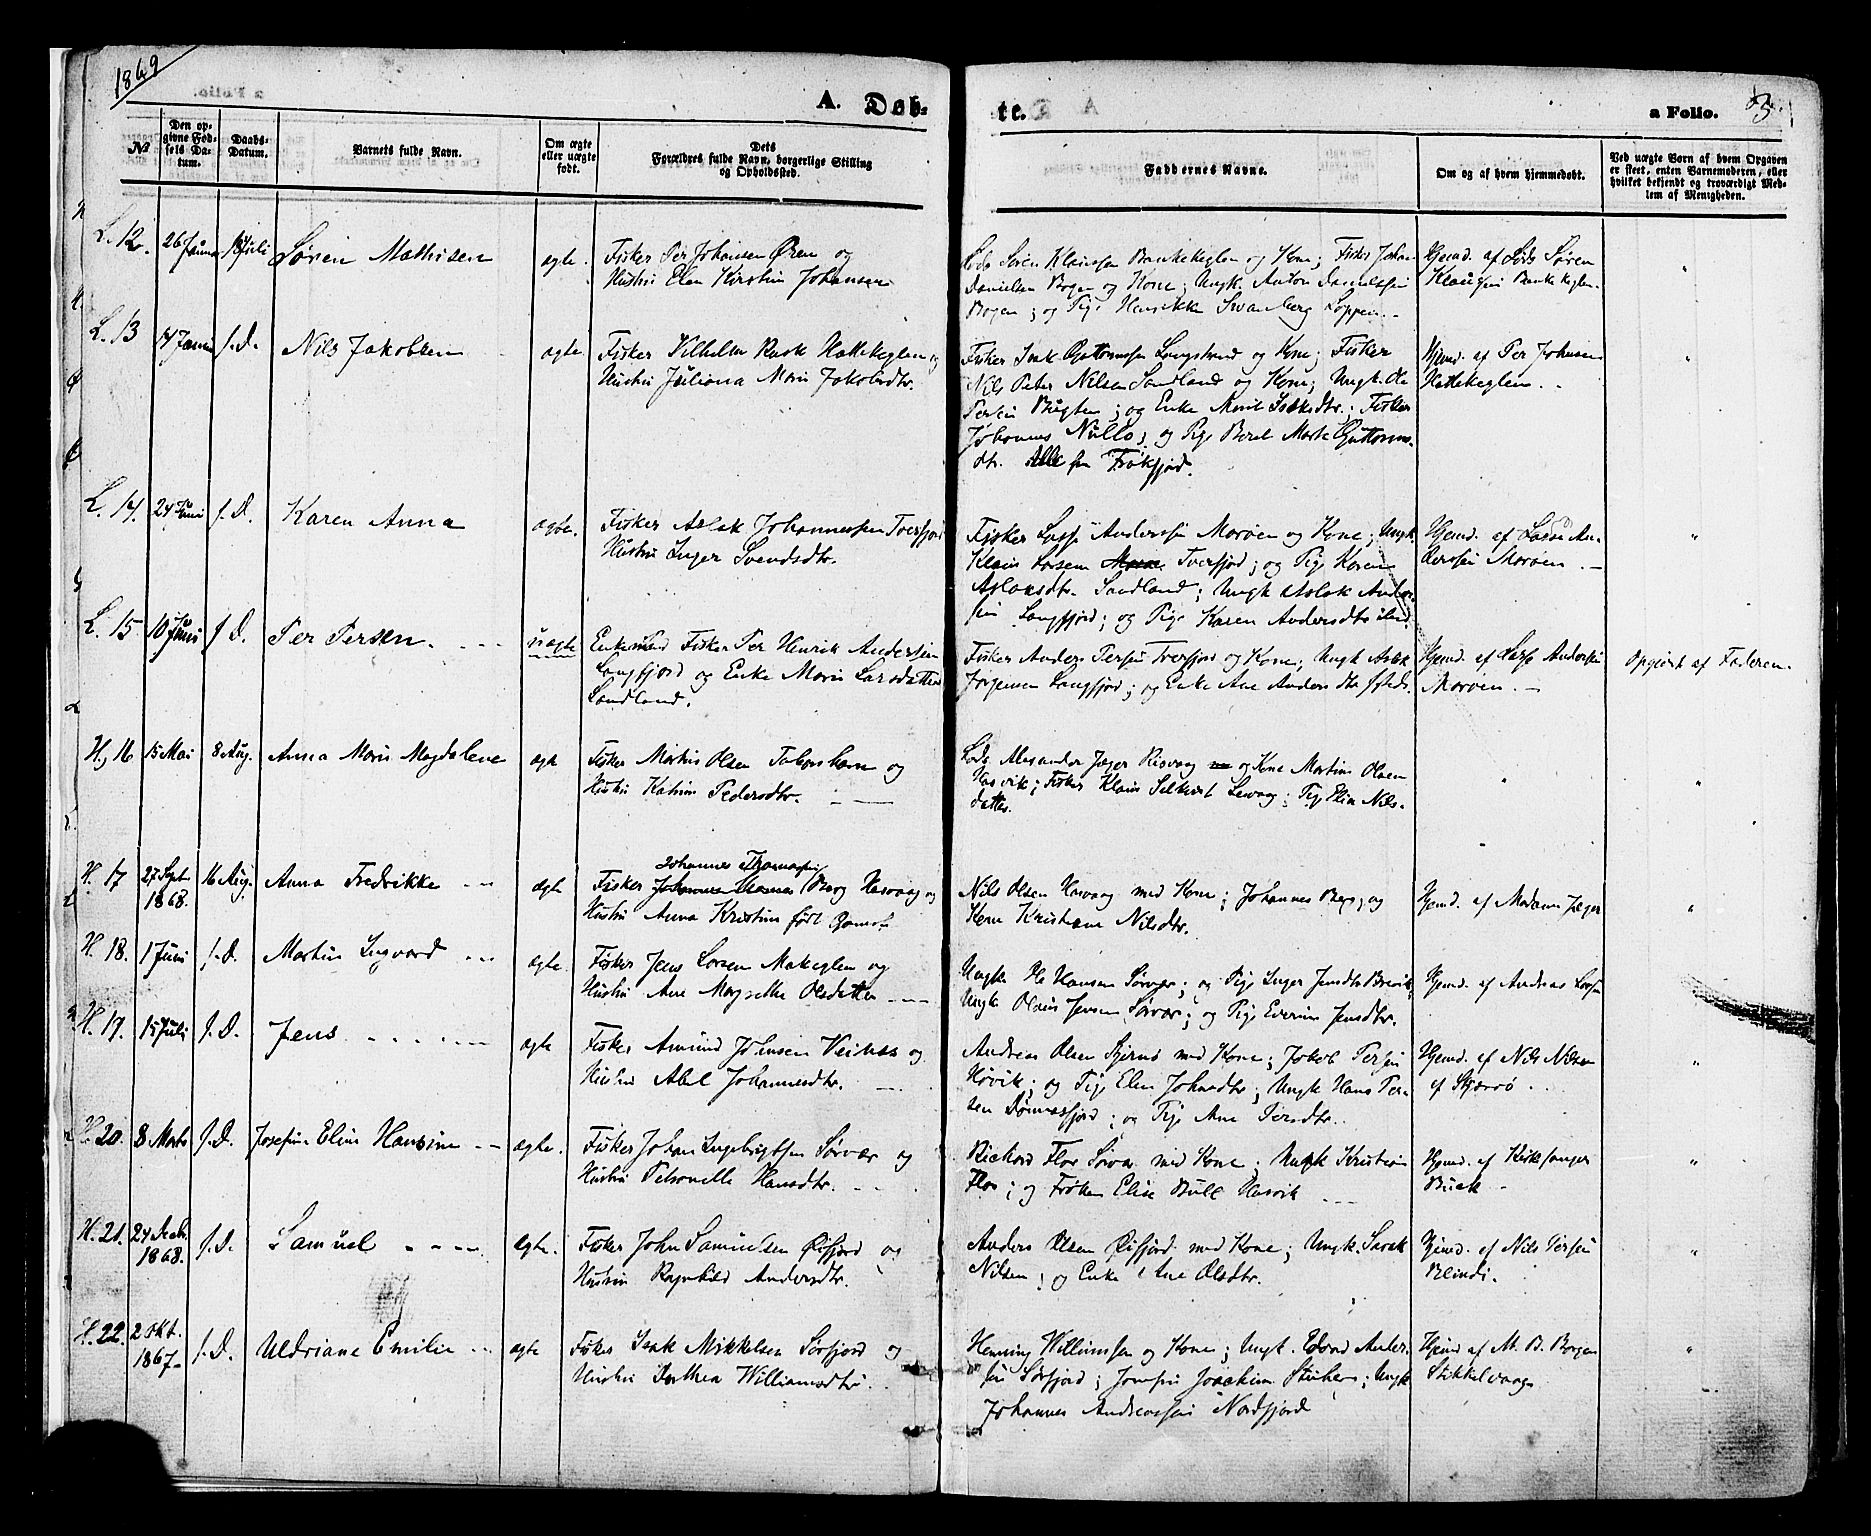 1869
A. Døb-
te.
a Folio. 3.
№
Den op-
givne Fød-
sels Da-
tum.
Daabs-
Datum.
Barnets fulde Navn.
Om ægte
eller uægte
født.
Dets
Forældres fulde Navn, borgerlige Stilling
og Opholdssted.
Faddernes Navne.
Om og af hvem hjemmedøbt.
Ved uægte Børn af hvem Opgaven
er skeet, enten Barnemoderen, eller
hvilket bekjendt og troværdigt Med-
lem af Menigheden.
L. 12. 26 Juli Søren Mathisen ægte. Fisker Per Johansen Øren og
Hustru Elen Kirstin Johansen
Lods Søren Klaussen Bankekeglen og Kone; Fisker Johan
Danielsen Bogen og Kone; Ungk. Anton Danielsen
Bogen; og Pige Henrikke Svanberg Loppen.
Hjemd. af Lods Søren
Klausen Bankekeglen.
L. 13 f. D. Nils Jakobsen ægte Fisker Vilhelm Rask Hattekeglen og
Hustru Juliana Maria Jakobsdtr.
Fisker Isak Guttormsen Langstrand og Kone; Fisker
Nils Peter Nilsen Sandland og Kone; Ungk. Ole
Persen Bugten; og Enke Marit Isaksdtr.; Fisker
Johannes Nullo; og Pige Beret Marte Guttorms-
dtr. Frakfjord.
Hjemd. af Per Johnsen
Hattekeglen.
L. 14. 24 Juni f. D. Karen Anna ægte. Fisker Aslak Johannessen Tverfjord
Hustru Inger Svendsdtr.
Fisker Lasse Anderssen Marøen og Kone; Ungk.
Klaus Larsen Tverfjord; og Pige Karen
Aslaksdtr. Sandland; Ungk Aslak Ander-
sen Langfjord; og Pige Karen Andersdtr
Hjemd. af Lasse An-
derssen Marøen.
L. 15. 10 Juni f. D. Per Persen. uægte Enkemand Fisker Per Henrik Andersen
Langfjord og Enke Maria Larsdatter
Sandland.
Fisker Anders Persen Tverfjord og Kone; Ungk Aslak
Jørgensen Langfjord; og Enke Ane Andersdtr
Hjemd. af Lasse Andersen
Marøen.
Opgivet af Faderen.
H. 16 15 Mai 8 Aug. Anna Maria Magdalene ægte Fisker Martin Olsen og
Hustru Katrine Pedersdtr.
Lods Alexander Jæger og Kone Martine Olsen
Hasvik; Fisker Klaus; Pige Elen Nils-
datter.
H. 17 27 Sept. 1868. 16 Aug. Anna Fredrikke ægte Johannes Thomassen
Fisker Berg Hasvaag og
Hustru Anna Kristine født
Nils Olsen Hasvaag med Kone; Johannes Berg; og
Kone Kristiane Nilsdtr.
Hjemd. af Madame Jæger
H. 18. 1 Juni f. D. Martin Ingvard ægte Fisker Jens Larsen Makeglen og
Hustru Ane Margrethe Olsdatter
Ungk. Ole Hansen Sørvær; og Pige Inger Jensdtr Breivik;
Ungk Olaus Jensen Sørvær; og Pige Everine Jensdtr.
Hjemd. af Andreas Larsen
H. 19. 15 Juli f. D. Jens ægte Fisker Amund Johnsen Veines og
Hustru Abel Johannesdtr.
Andreas Olsen Stjernø med Kone; Jakob Persen
Høvik; og Pige Elen Johnsdtr; Ungk Hans Per-
sen Dønnesfjord; og Pige Ane Persdtr.
Hjemd. af Nils Nilsen
H. 20. 8 Marts f. D. Josefine Eline Hansine ægte. Fisker Johan Ingebrigtsen Sørvær og
Hustru Petronelle Hansdtr.
Richard Flor Sørvær med Kone; Ungk Kristian
Flor; og Frøken Elise Bull Hasvik
Hjemd. af Kirkesanger
Buck
H. 21. 24 Decbr. 1868. f. D. Samuel ægte. Fisker John Samuelsen Øifjord og
Hustru Ragnhild Andersdtr.
Anders Olsen Øifjord med Kone; Ungk. Isak
Nilsen; og Enke Ane Olsdtr.
Hjemd. af Nils Persen
Blindi.
H. 22. 2 Okt. 1867. f. D. Uldriane Emilie ægte Fisker Isak Mikkelsen Sørfjord og
Hustru Dorthea Williamsdtr.
Henning Williumsen og Kone; Ungk. Edvard Ander-
sen Sørfjord; Jomfru Joachim; Ungk
Johannes Andreassen Nordfjord
Hjemd af M. B. Borgen
Stikkelvaag